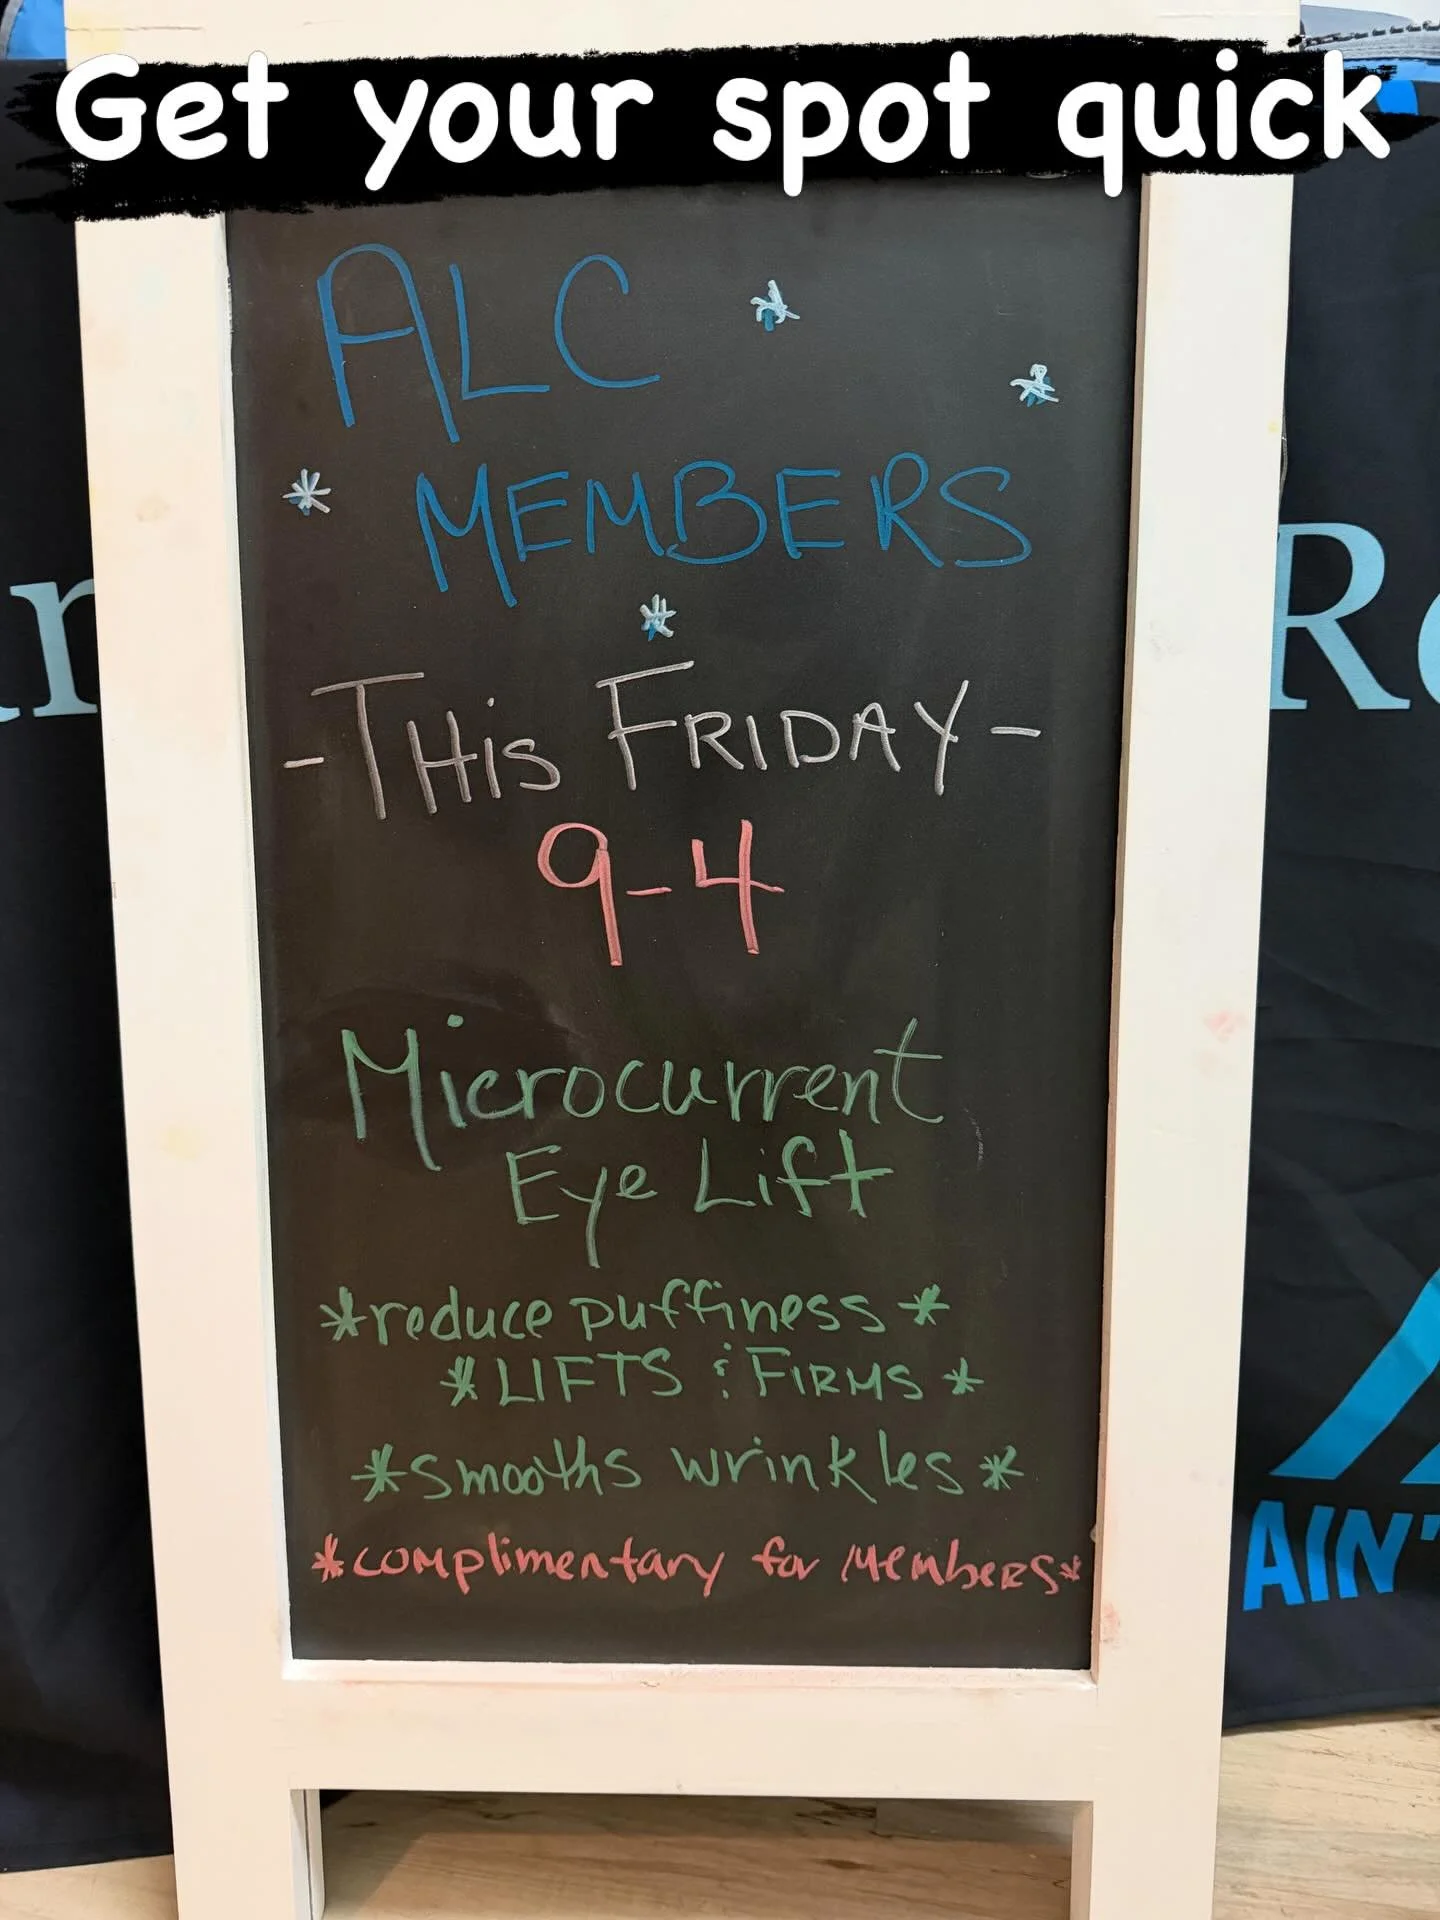 Get your spot quick
ALC
MEMBERS
-THiS FRIDAY-
9-4
Microcurrent
Eye Lift
*reduce puffiness*
*LIFTS & FIRMS*
*smooths wrinkles*
*complimentary for MEMbERS*
R
AIN'